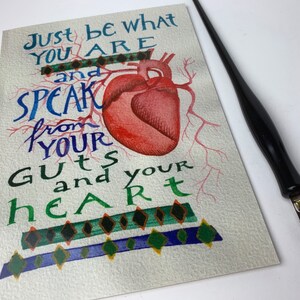 Just be what
YOU ARE
and
SPEAK
from
YOUR
GUTS
and your
heART